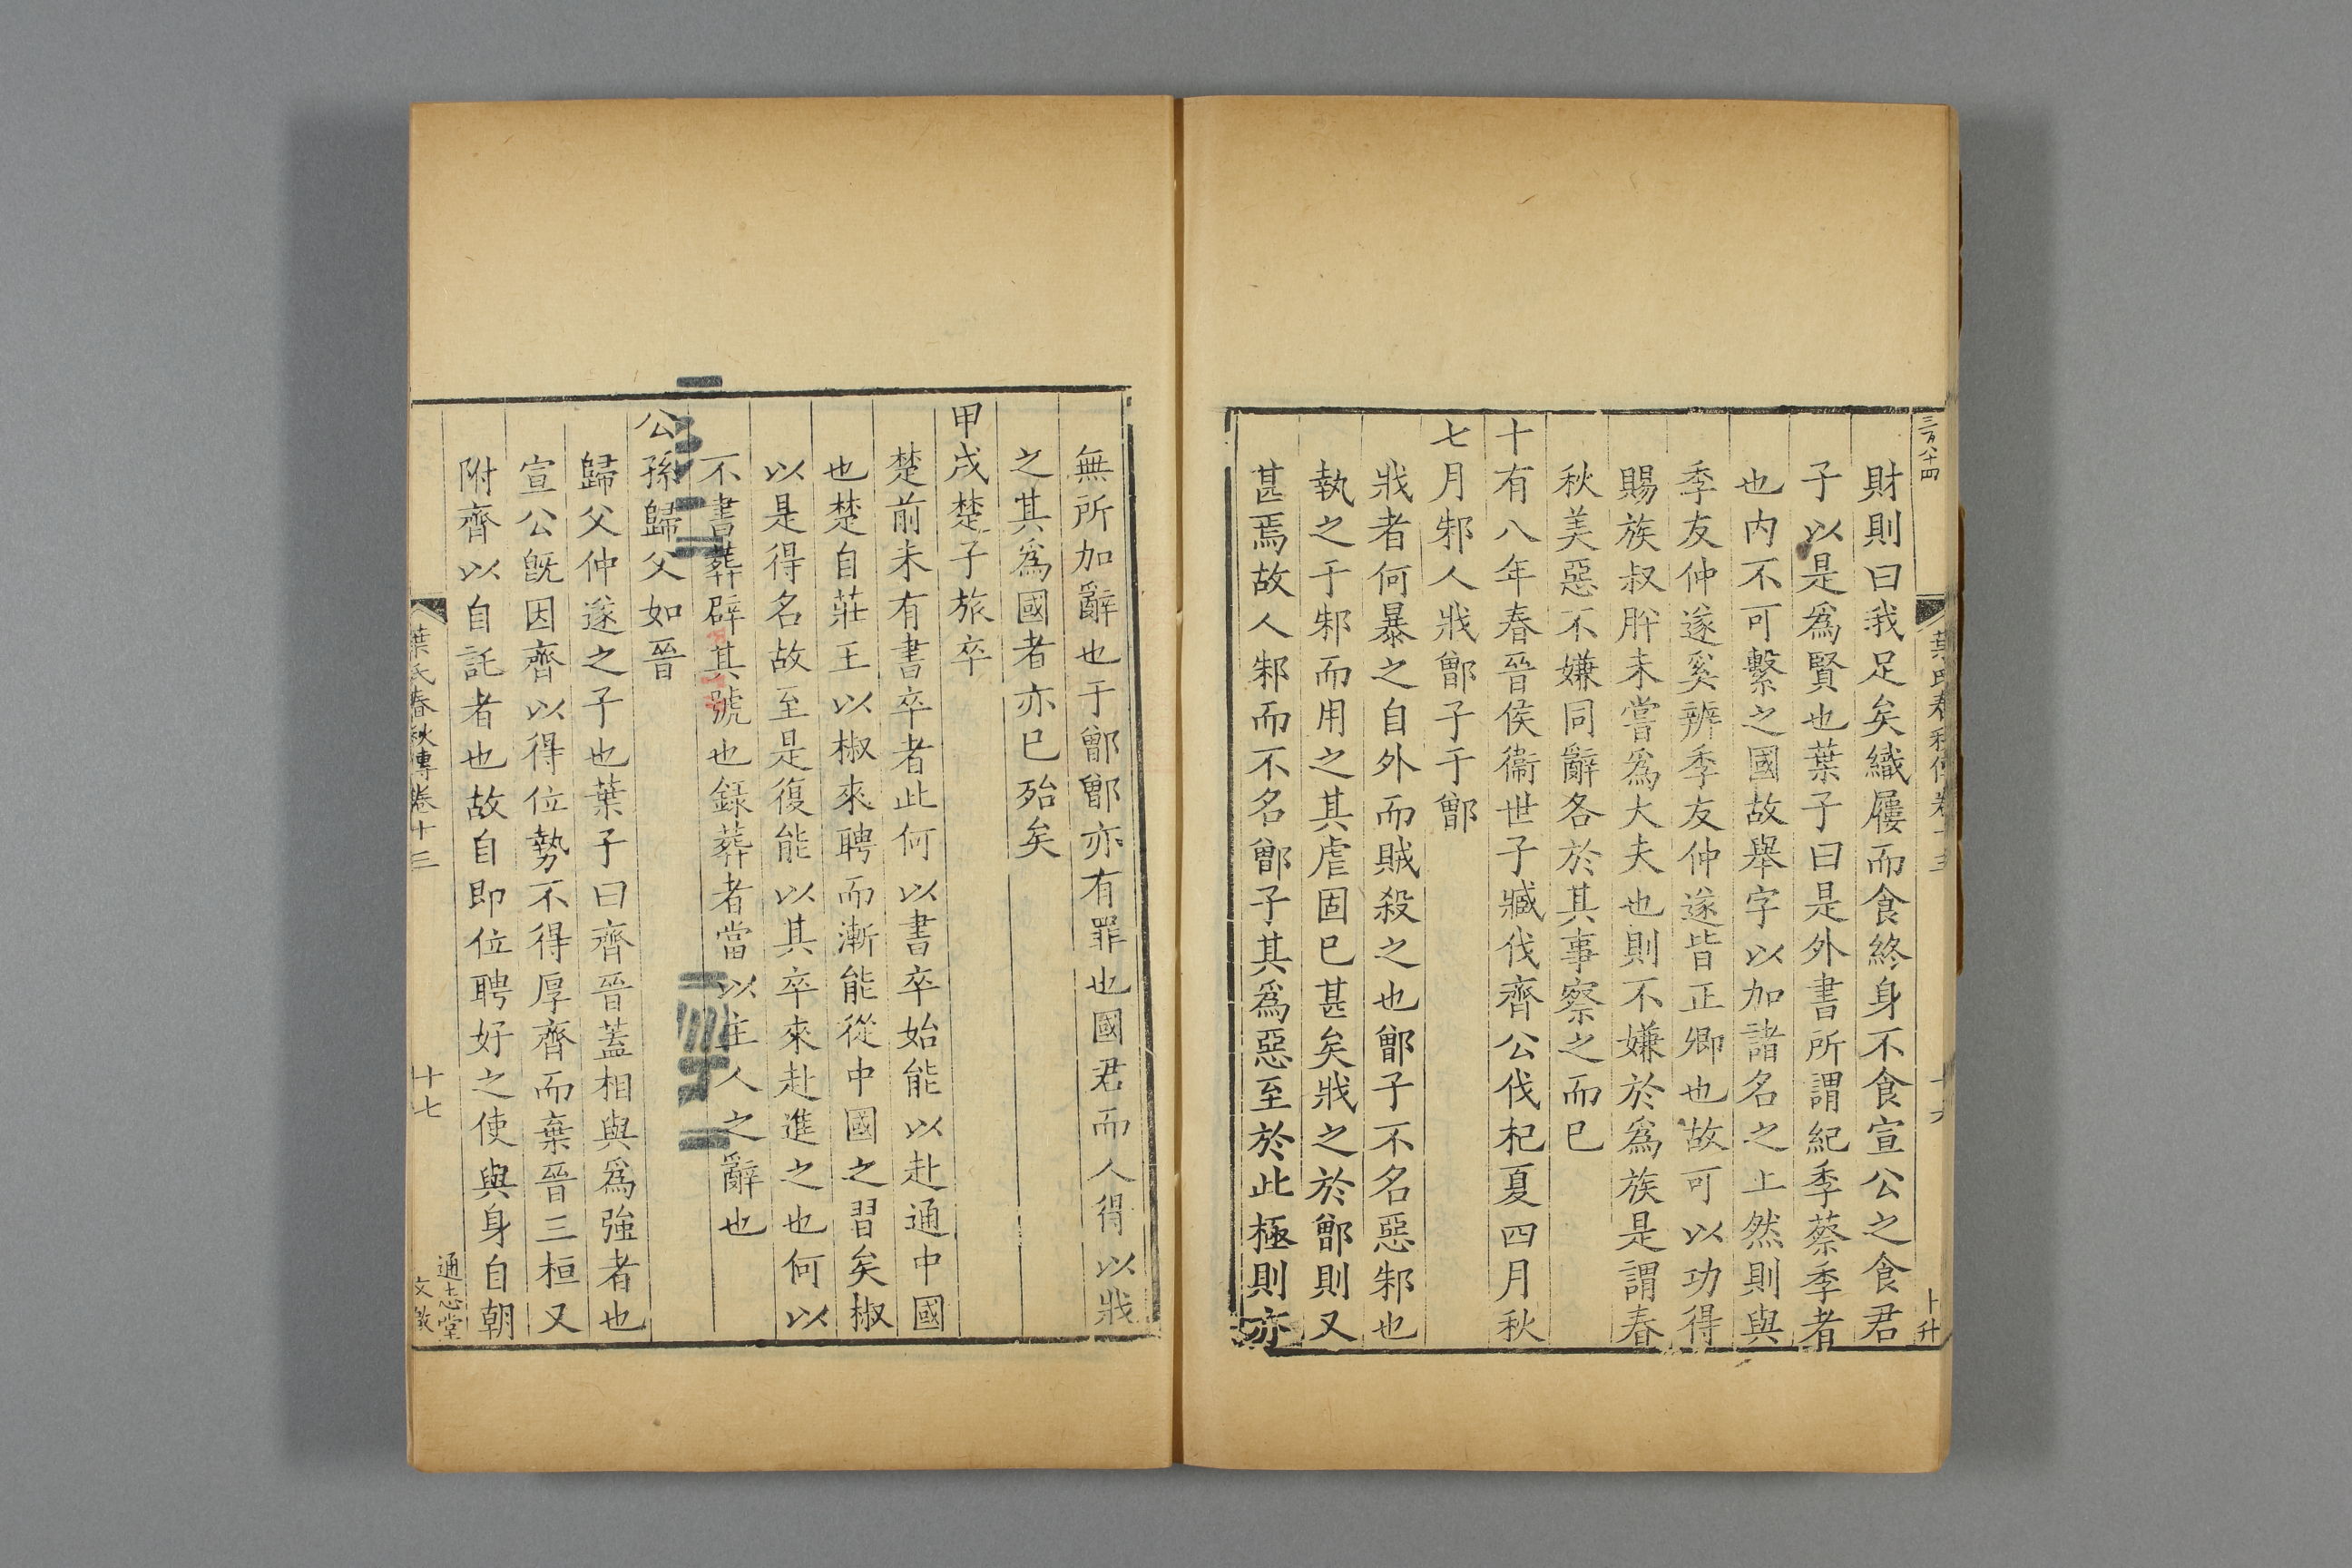 三百八十四
葉氏春秋傳卷十三
十六
卜升
財則曰我足矣織屨而食終身不食宣公之食君
子以是爲賢也葉子曰是外書所謂紀季蔡季者
也内不可繫之國故舉字以加諸名之上然則與
季友仲遂奚辨季友仲遂皆正卿也故可以功得
賜族叔肸未嘗爲大夫也則不嫌於爲族是謂春
秋美惡不嫌同辭各於其事察之而巳
十有八年春晉侯衞世子臧伐齊公伐杞夏四月秋
七月邾人戕鄫子于鄫
戕者何暴之自外而賊殺之也鄫子不名惡邾也
執之于邾而用之其虐固巳甚矣戕之於鄫則又
甚焉故人邾而不名鄫子其爲惡至於此極則亦
無所加辭也于鄫鄫亦有罪也國君而人得以戕
之其爲國者亦巳殆矣
甲戌楚子旅卒
楚前未有書卒者此何以書卒始能以赴通中國
也楚自莊王以椒來聘而漸能從中國之習矣椒
以是得名故至是復能以其卒來赴進之也何以
不書葬辟其號也録葬者當以主人之辭也
公孫歸父如晉
歸父仲遂之子也葉子曰齊晉蓋相與爲強者也
宣公旣因齊以得位勢不得厚齊而棄晉三桓又
附齊以自託者也故自即位聘好之使與身自朝
葉氏春秋傳卷十三
十七
通志堂